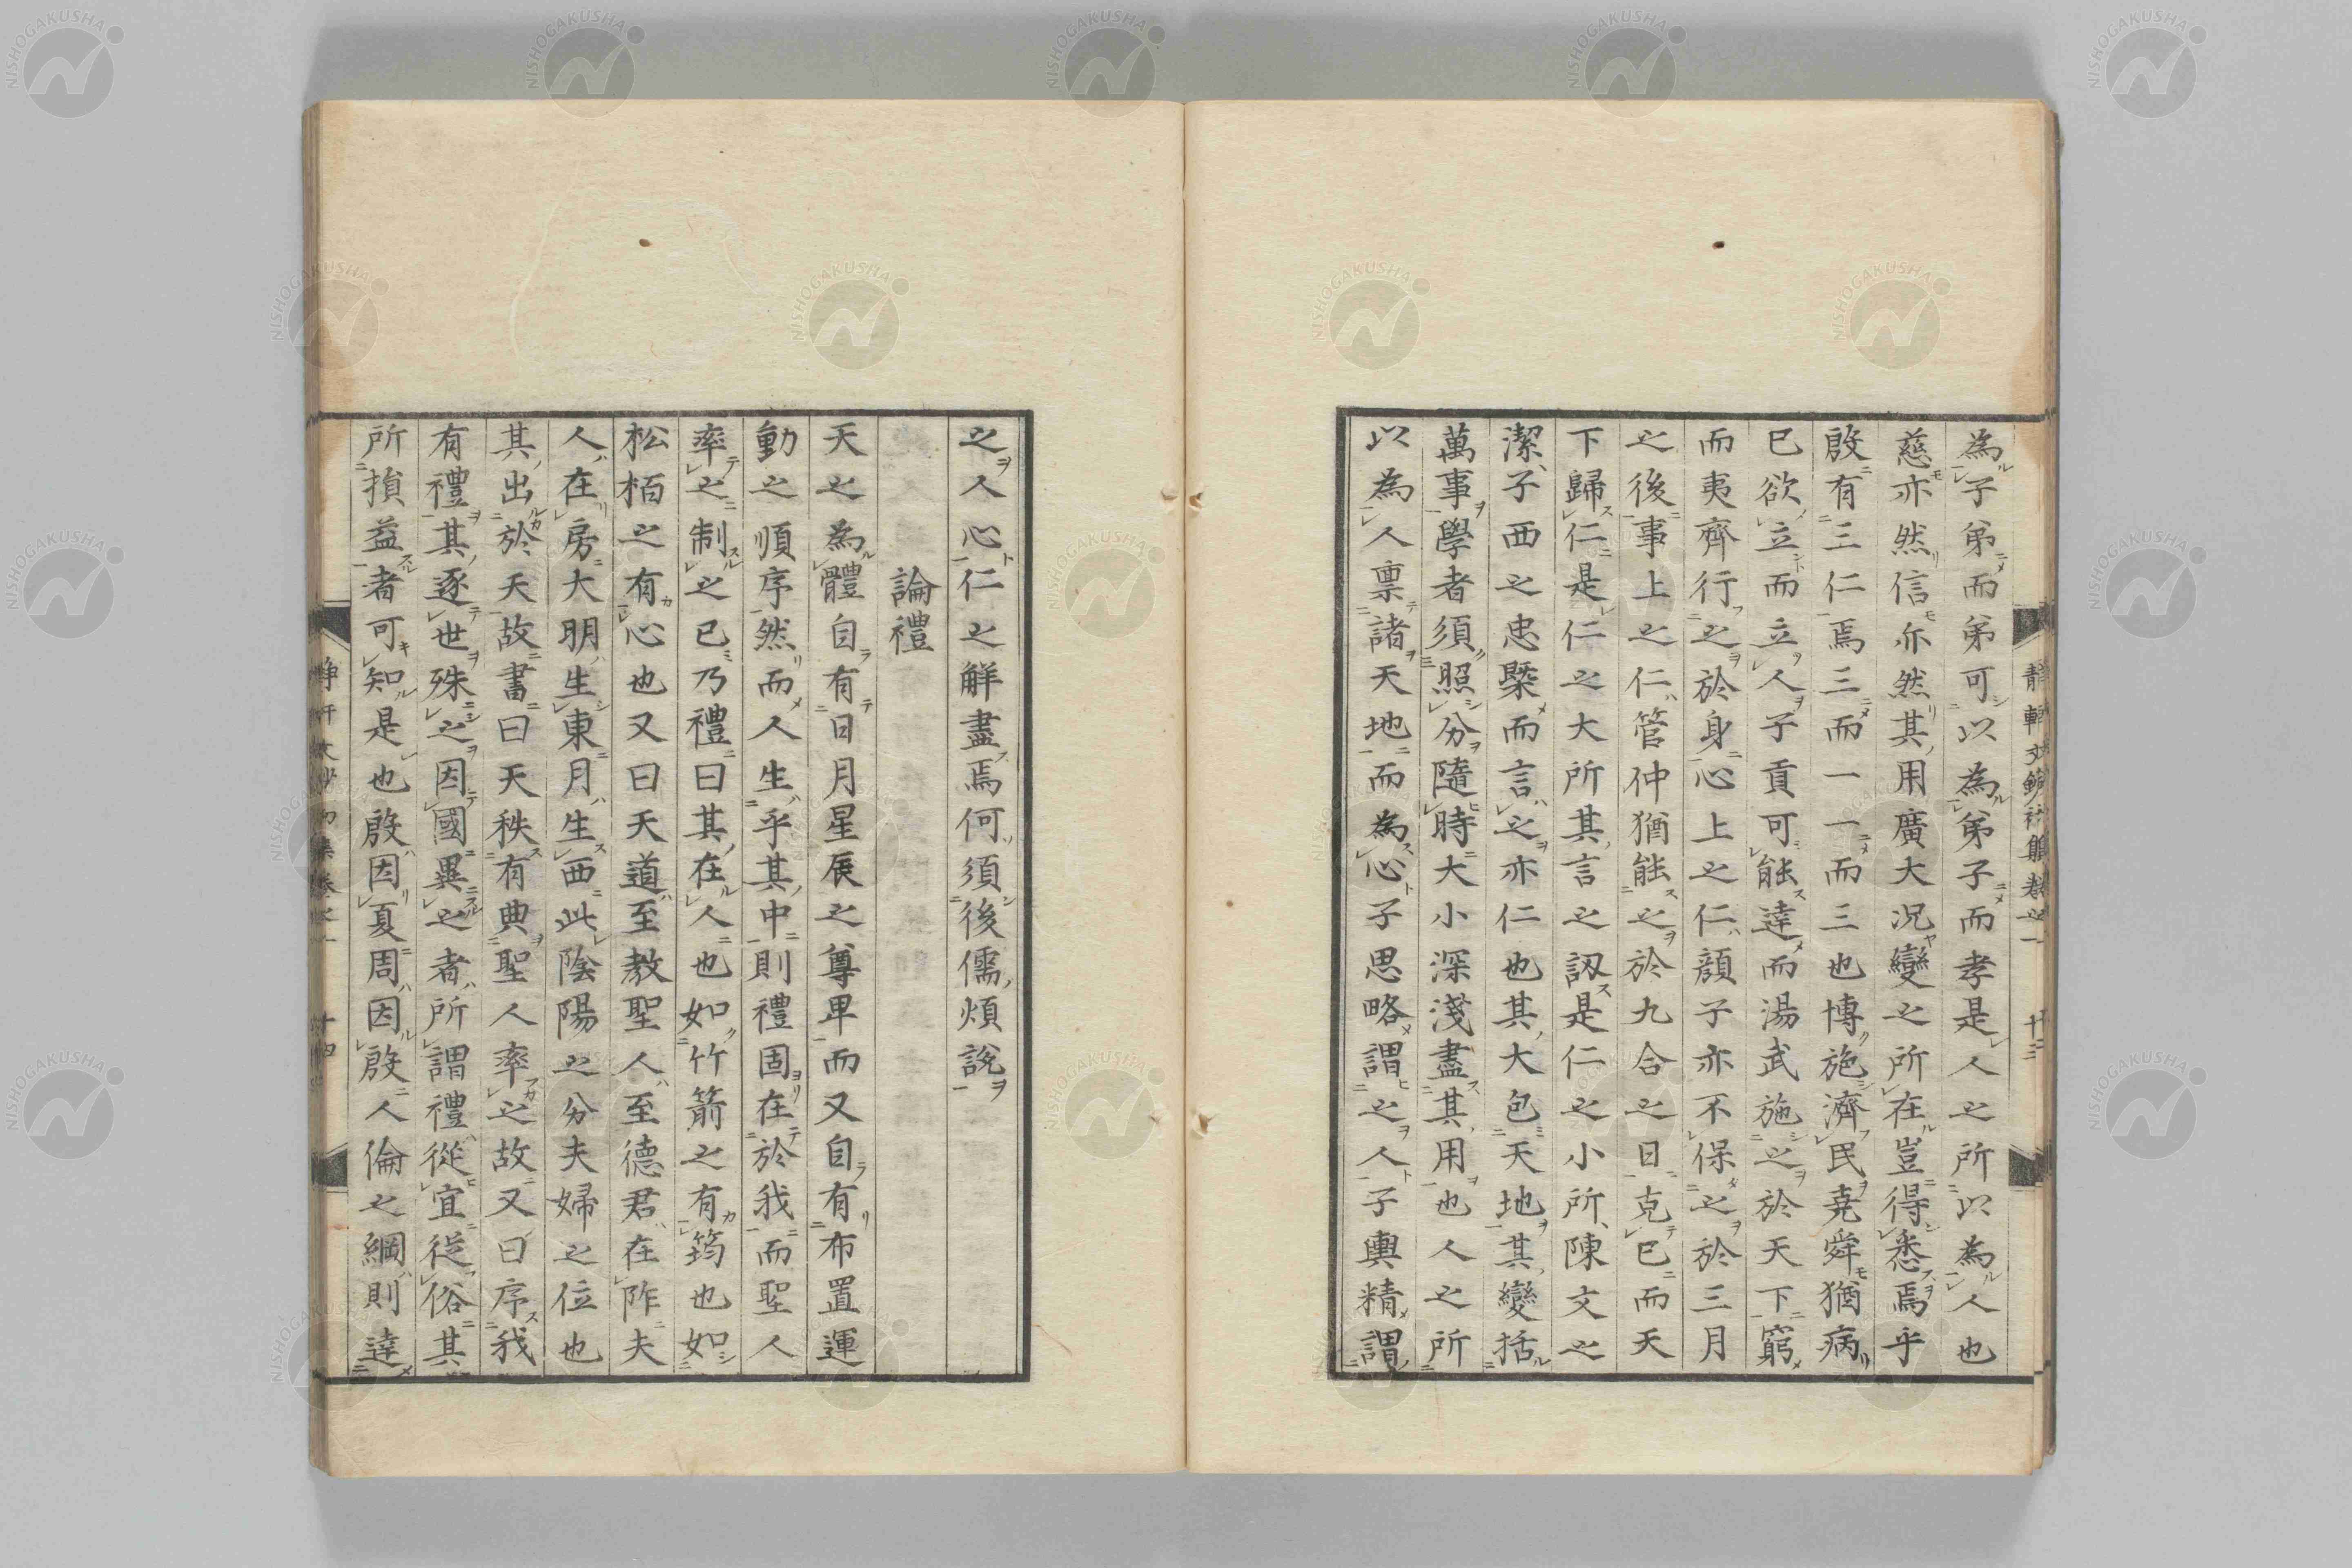 為子弟而弟可以為弟子而孝是人之所以為人也
慈亦然信亦然其用廣大況變之所在豈得悉焉乎
殷有三仁焉三而一一而三也博施濟民堯舜猶病
已欲立而立人子貢可能達而湯武施之於天下窮
而夷齊行之於身心上之仁顏子亦不保之於三月
之後事上之仁管仲猶能之於九合之日克己而天
下歸仁是仁之大所其言之訒是仁之小所陳文之
潔子西之忠槩而言之亦仁也其大包天地其變括
萬事學者須照分隨時大小深淺盡其用也人之所
以為人禀諸天地而為心子思略謂之人子輿精謂
之人心仁之解盡焉何須後儒煩說
論禮
天之為體自有日月星辰之尊卑而又自有布置運
動之順序然而人生乎其中則禮固在於我而聖人
率之制之已乃禮曰其在人也如竹箭之有筠也如
松栢之有心也又曰天道至教聖人至德君在阼夫
人在房大明生東月生西此陰陽之分夫婦之位也
其出於天故書曰天秩有典聖人率之故又曰序我
有禮其逐世殊之因國異之者所謂禮從宜從俗其
所損益者可知是也殷因夏周因殷人倫之綱則達
十四
NISHOGAKUSHA